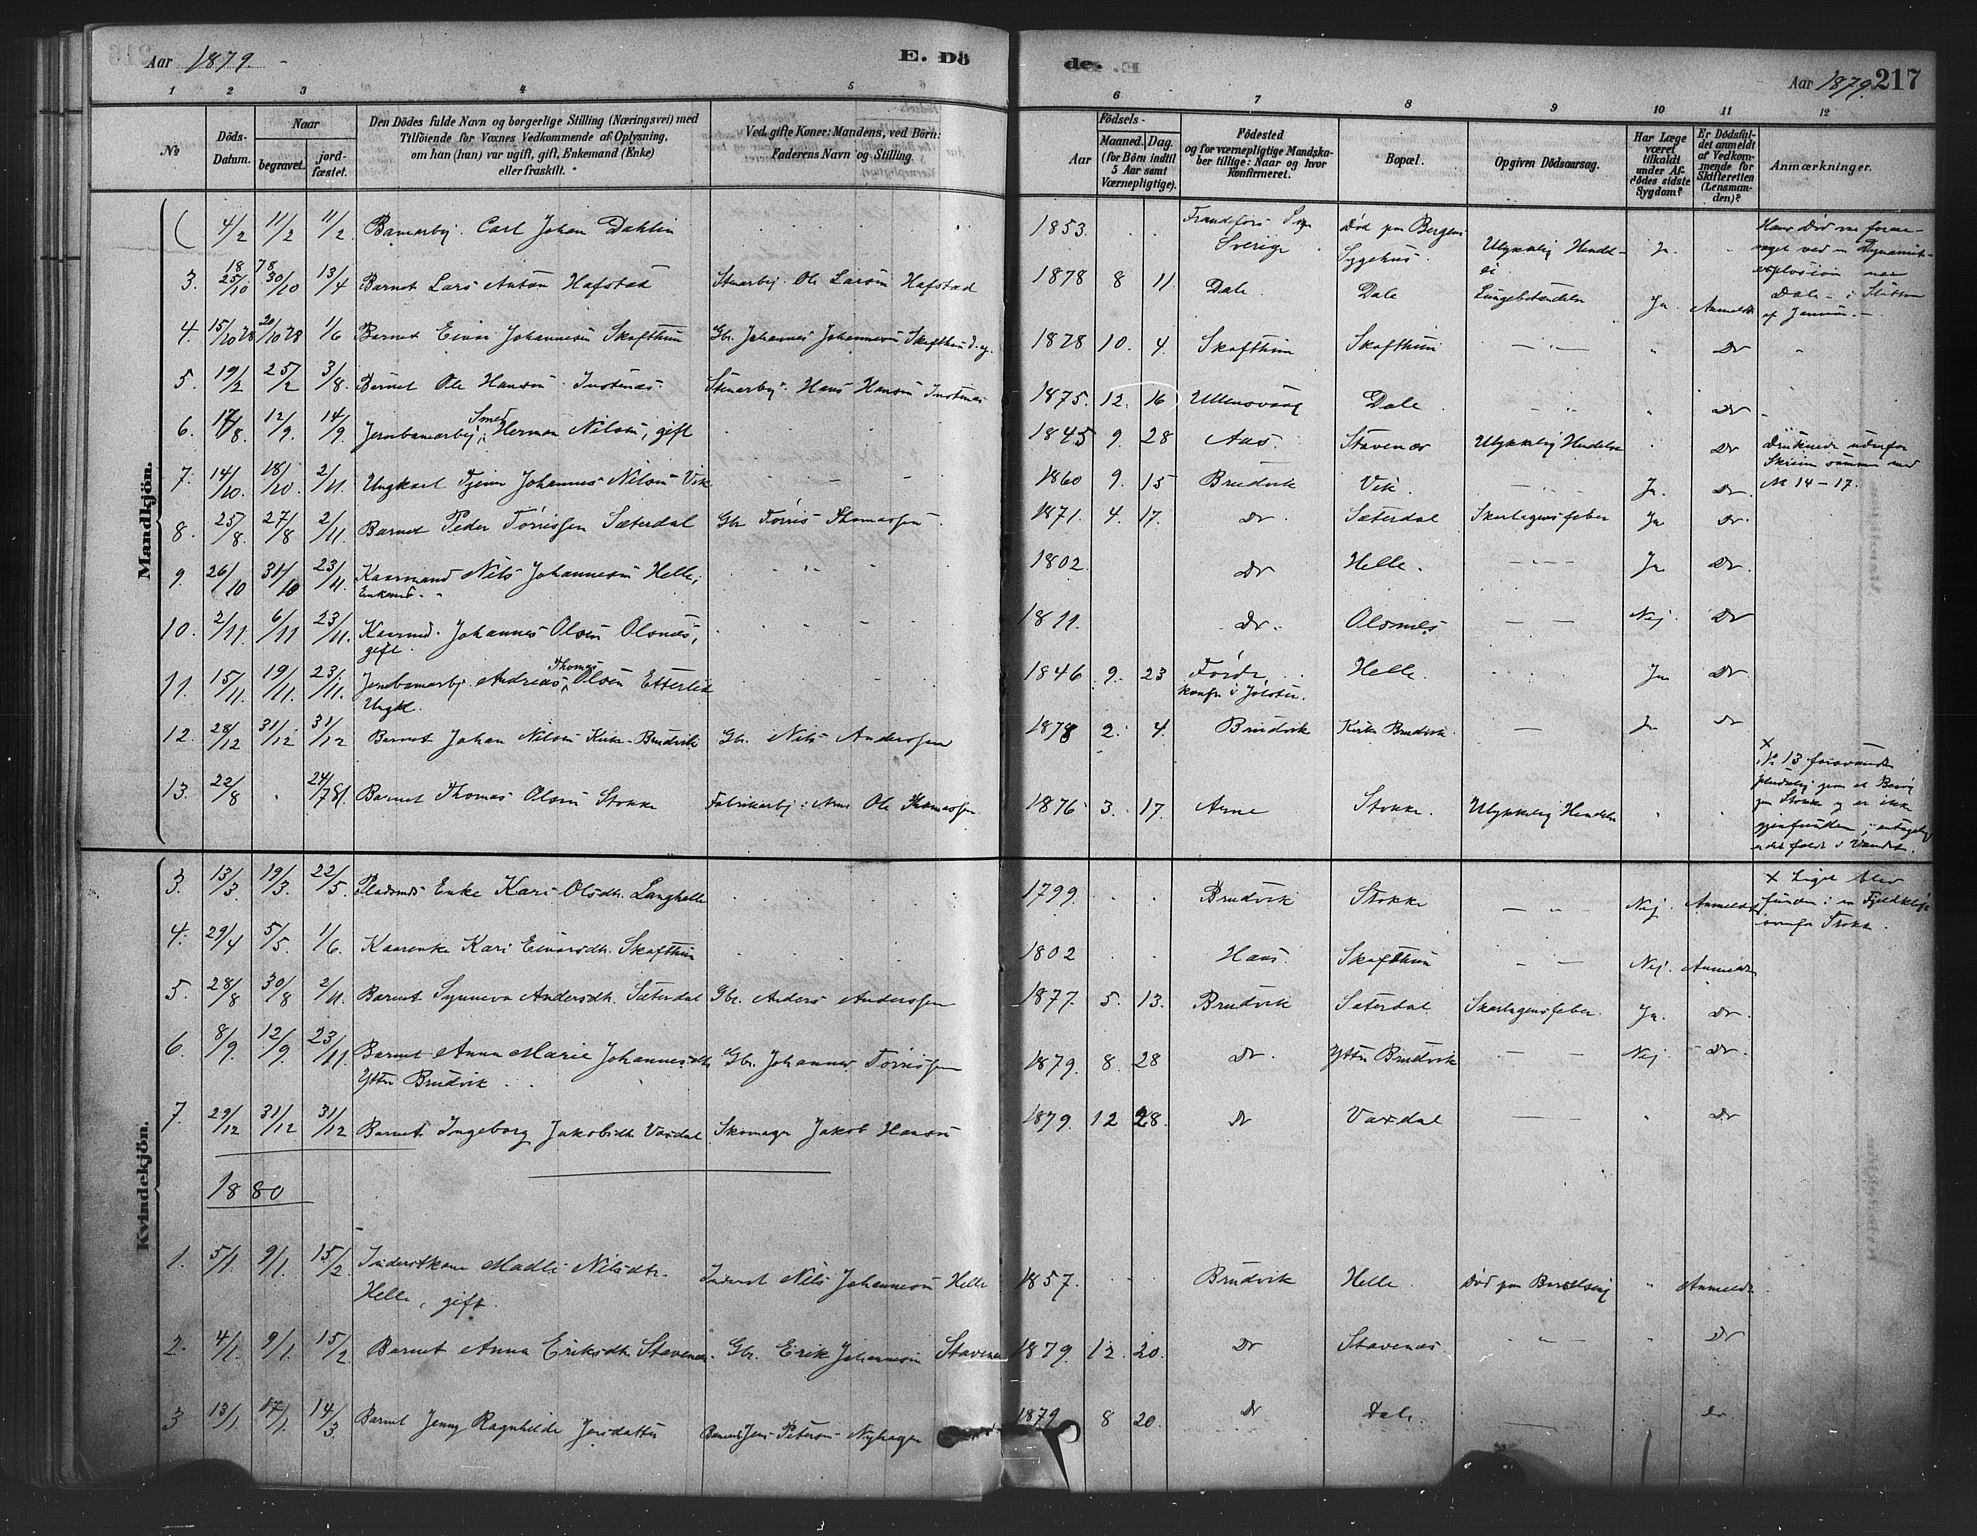 Aar 1879.
E. Dö
de.
Aar 1879. 217
1 2 3 4 5 6
6 7 8 9 10 11 12
No
Döds-Datum.
Naar
begravet.
jord-fæstet.
Den Dödes fulde Navn og borgerlige Stilling (Næringsvei) med
Tilföiende for Voxnes Vedkommende af Oplysning,
om han (hun) var ugift, gift, Enkemand (Enke)
eller fraskilt.
Ved gifte Koner: Mandens, ved Börn:
Faderens Navn og Stilling.
Födsels-
Aar
Maaned. Dag.
(for Börn indtil
5 Aar samt
Værnepligtige).
Födested
og for værnepligtige Mandska-
ber tillige: Naar og hvor
konfirmeret.
Bopæl.
Opgiven Dödsaarsag.
Har Læge
været
tilkaldt
under Af-
dödes sidste
Sygdom?
Er Dödsfal-
det anmeldt
af Vedkom-
mende for
Skifteretten
(Lensman-
den)?
Anmærkninger.
Mandkjön.
4/2 11/2 11/2 Banearbej. Carl Johan Dahlin 1853. Sverige Död paa Bergens Sygehus. Ulykkelig Hendel- Ja. Hans Död var foraar-
saget ved en Dynamit-
explosion
3. 18 78 25/10 30/10 13/4 Barnet Lars Anton Hafstad Stenarbej. Ole Larsen Hafstad 1878 8 11 Dale. Dale Lungebetændelse Ja Anmeldt
4. 15/10 78 20/10 78 1/6 Barnet Einar Johannesen Skafthun Gbr. Johannes Johannesen Skafthun 1878 10. 4. Skafthun Skafthun — " — " Do "
5. 19/2 25/2 3/8. Barnet Ole Hansen Instenæs Stenarbej. Hans Hansen Instenæs 1875. 12. 16 Ullensvang Dale " " " Do
6. 17/8. 12/9. 14/9. Jernbanearbej; Smed Herman Nilsen, gift 1845 9. 28 Aas Stavenæs Ulykkelig Hendelse " Do Druknede udenfor
Skreien sammen med
N 14-17.
7. 14/10. 18/10. 2/11. Ungkarl Tjener Johannes Nilsen Vik 1860 9. 15 Brudvik Vik. Ja Do.
8. 25/8. 27/8 2/11. Barnet Peder Torrissen Sæterdal Gbr Torris Thomassen 1871. 4. 17. Do. Sæterdal Skarlagensfeber Ja Do.
9. 26/10 31/10 23/11. Kaarmand Nils Johannesen Helle,
Enkemd. 1802 Do Helle. Ja Do.
10. 2/11. 6/11 23/11. Kaarmd. Johannes Olsen Olsnæs,
gift. 1811. Do. Olsnæs — — Nej. Do
11. 15/11. 19/11. 23/11. Jernbanearbj. Andreas Thomas Olsen Etterlid
Ungkl. 1846 9. 23 Förde
konfr i Jölster. Helle. Ja Do
12. 28/12 31/12 31/12 Barnet Johan Nilsen Kirke-Brudvik Gbr. Nils Anderssen 1878 2. 4. Brudvik Kirke Brudvik. — Ja Do
13. 22/8 24/7 81. Barnet Thomas Olsen Stokke Fabrikarbj: Arne Ole Thomassen 1876 3. 17. Arne Stokke. Ulykkelig Hendelse " " x
N: 13 forsvandt
Kvindekjön.
3. 13/3 19/3. 22/5. Pladsmds Enke Kari Olsdtr. Langhelle 1799 Brudvik Stokke — " — Nej. Anmeldt x Liget blev
funden i en Fjeldkløft
ovenfor Stokke.
4. 29/4 5/5. 1/6. Kaarenke Kari Einarsdtr. Skafthun 1802 Haus. Skafthun — — Nej. Anmeldt
5. 28/8 30/8 2/11. Barnet Synneva Andersdtr. Sæterdal Gbr. Anders Anderssen 1877. 5. 13. Brudvik Sæterdal Skarlagensfeber. Ja. Do.
6. 8/9. 12/9. 23/11. Barnet Anna Marie Johannesdtr
Ytter Brudvik Gbr. Johannes Torrissen 1879. 8. 28 Do. Ytter Brudvik — — Nej. Do.
7. 29/12 31/12 31/12 Barnet Ingeborg Jakobsdtr Vaxdal Skomager Jakob Hansen 1879. 12 28. Do Vaxdal — " Do
1880
1. 5/1. 9/1. 15/2. Inderstkone Madli Nilsdtr.
Helle, gift. Inderst Nils Johannesen Helle 1857. Brudvik Helle. Död paa Barselseng " Anmeldt
2. 4/1. 9/1. 15/2. Barnet Anna Eriksdtr. Stavenæs. Gbr. Erik Johannesen Stavenæs 1879. 12. 20. Do Stavenæs. — " — " Do
3 13/1. 17/1. 14/3. Barnet Jenny Ragnhilde Jensdatter Jens Petersen Nyhagen 1879 8 20. Do Dale. — Do.